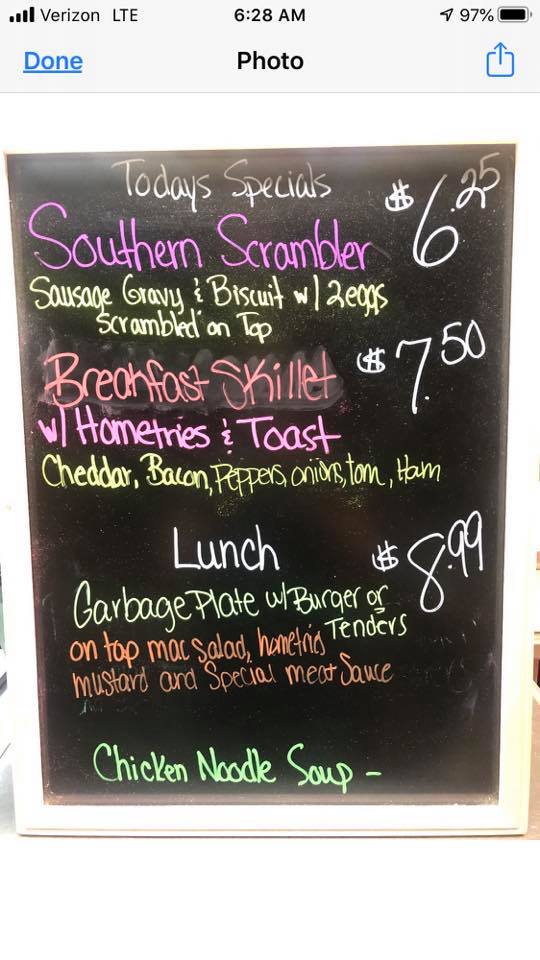 Verizon LTE 6:28 AM 97%
Done Photo
Todays Specials
Southern Scrambler $6.25
Sausage Gravy & Biscuit w/ 2eggs
Scrambled on Top
Breakfast Skillet $7.50
w/ Homefries & Toast
Cheddar, Bacon, Peppers, onions, tom, Ham
Lunch $8.99
Garbage Plate w/ Burger or
Tenders
on top mac salad, homefries
mustard and Special meat Sauce
Chicken Noodle Soup -